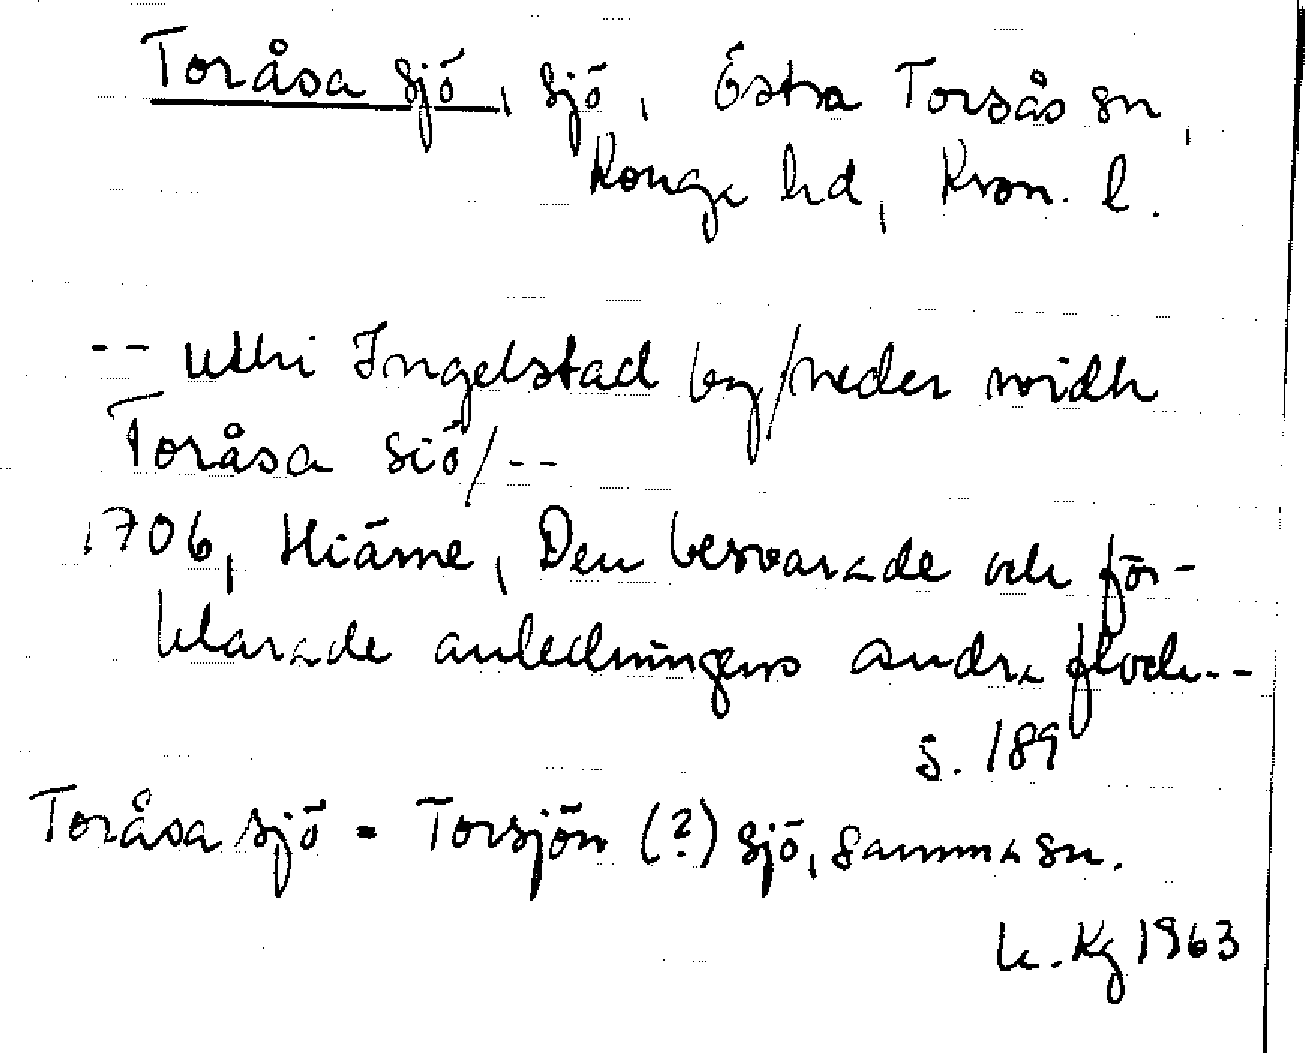 Toråsa sjö, sjö, Östra Torsås sn,
Konga hd, Kron. l.
-- uthi Ingelstad by/neder widh
Toråsa siö/--
1706, Hiärne, Den besvarade och för-
klarade anledningens andra flock--
s. 189
Toråsa sjö = Torsjön (?) sjö, samma sn.
Kg 1963